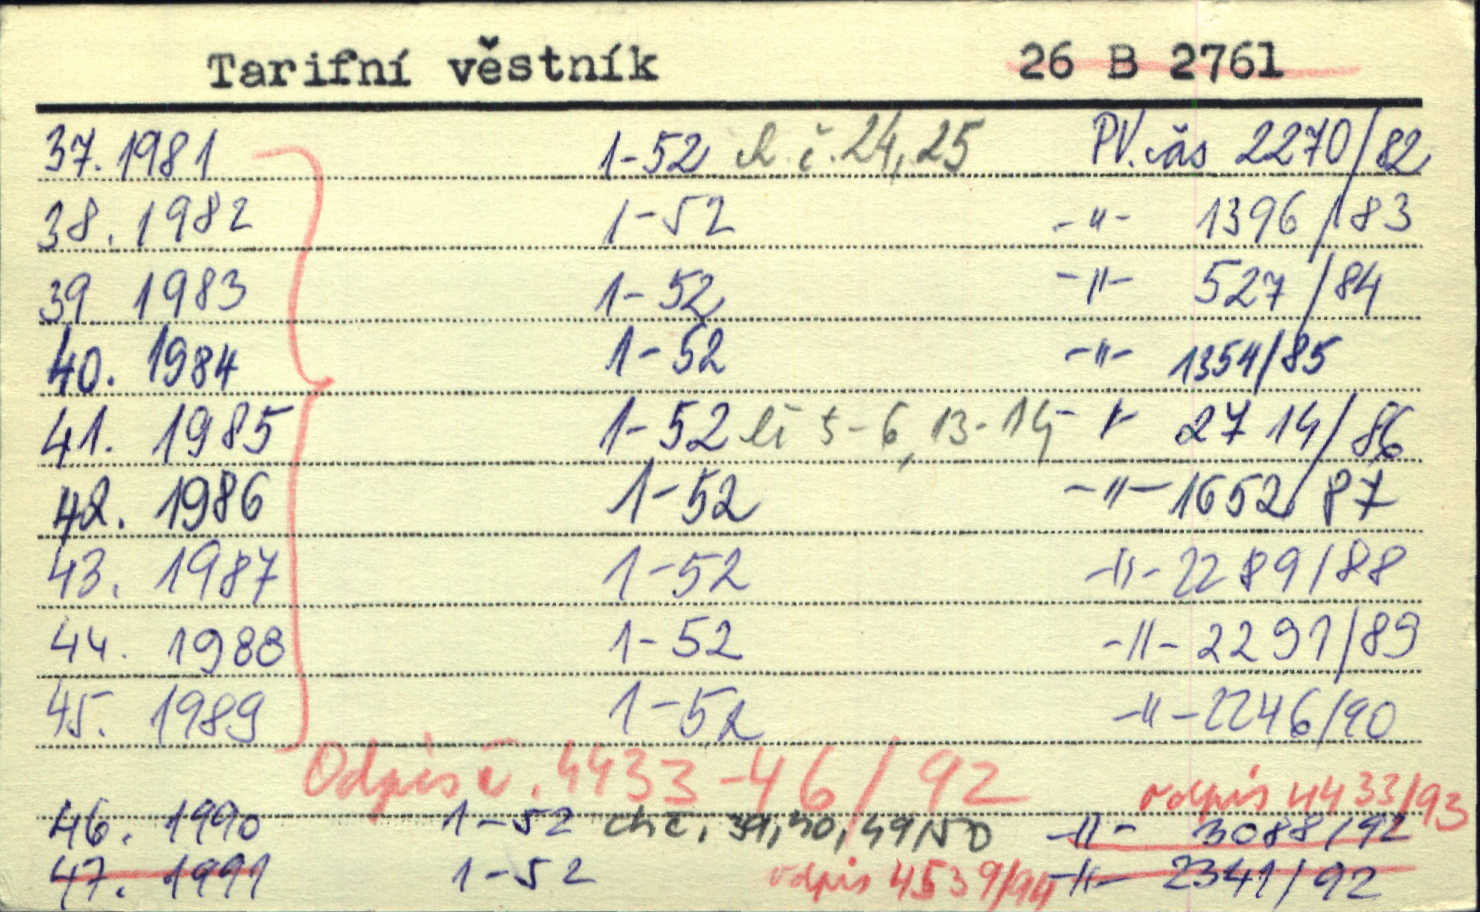 Tarifní věstník 26 B 2761
37. 1981 1-52 ch. č. 24, 25 PV. čás 2270/82
38. 1982 1-52 -"- 1396/83
39 1983 1-52 -"- 527/84
40. 1984 1-52 -"- 1354/85
41. 1985 1-52 5-6, 13-14 -"- 2714/86
42. 1986 1-52 -"- 1652/87
43. 1987 1-52 -"- 2289/88
44. 1988 1-52 -"- 2291/89
45. 1989 1-52 -"- 2246/90
Odpis č. 4433-46/92
odpis 4433/93
46. 1990 1-52 ch č. 49/50 -"- 3088/92
47. 1991 1-52 odpis 4539/94 -"- 2341/92